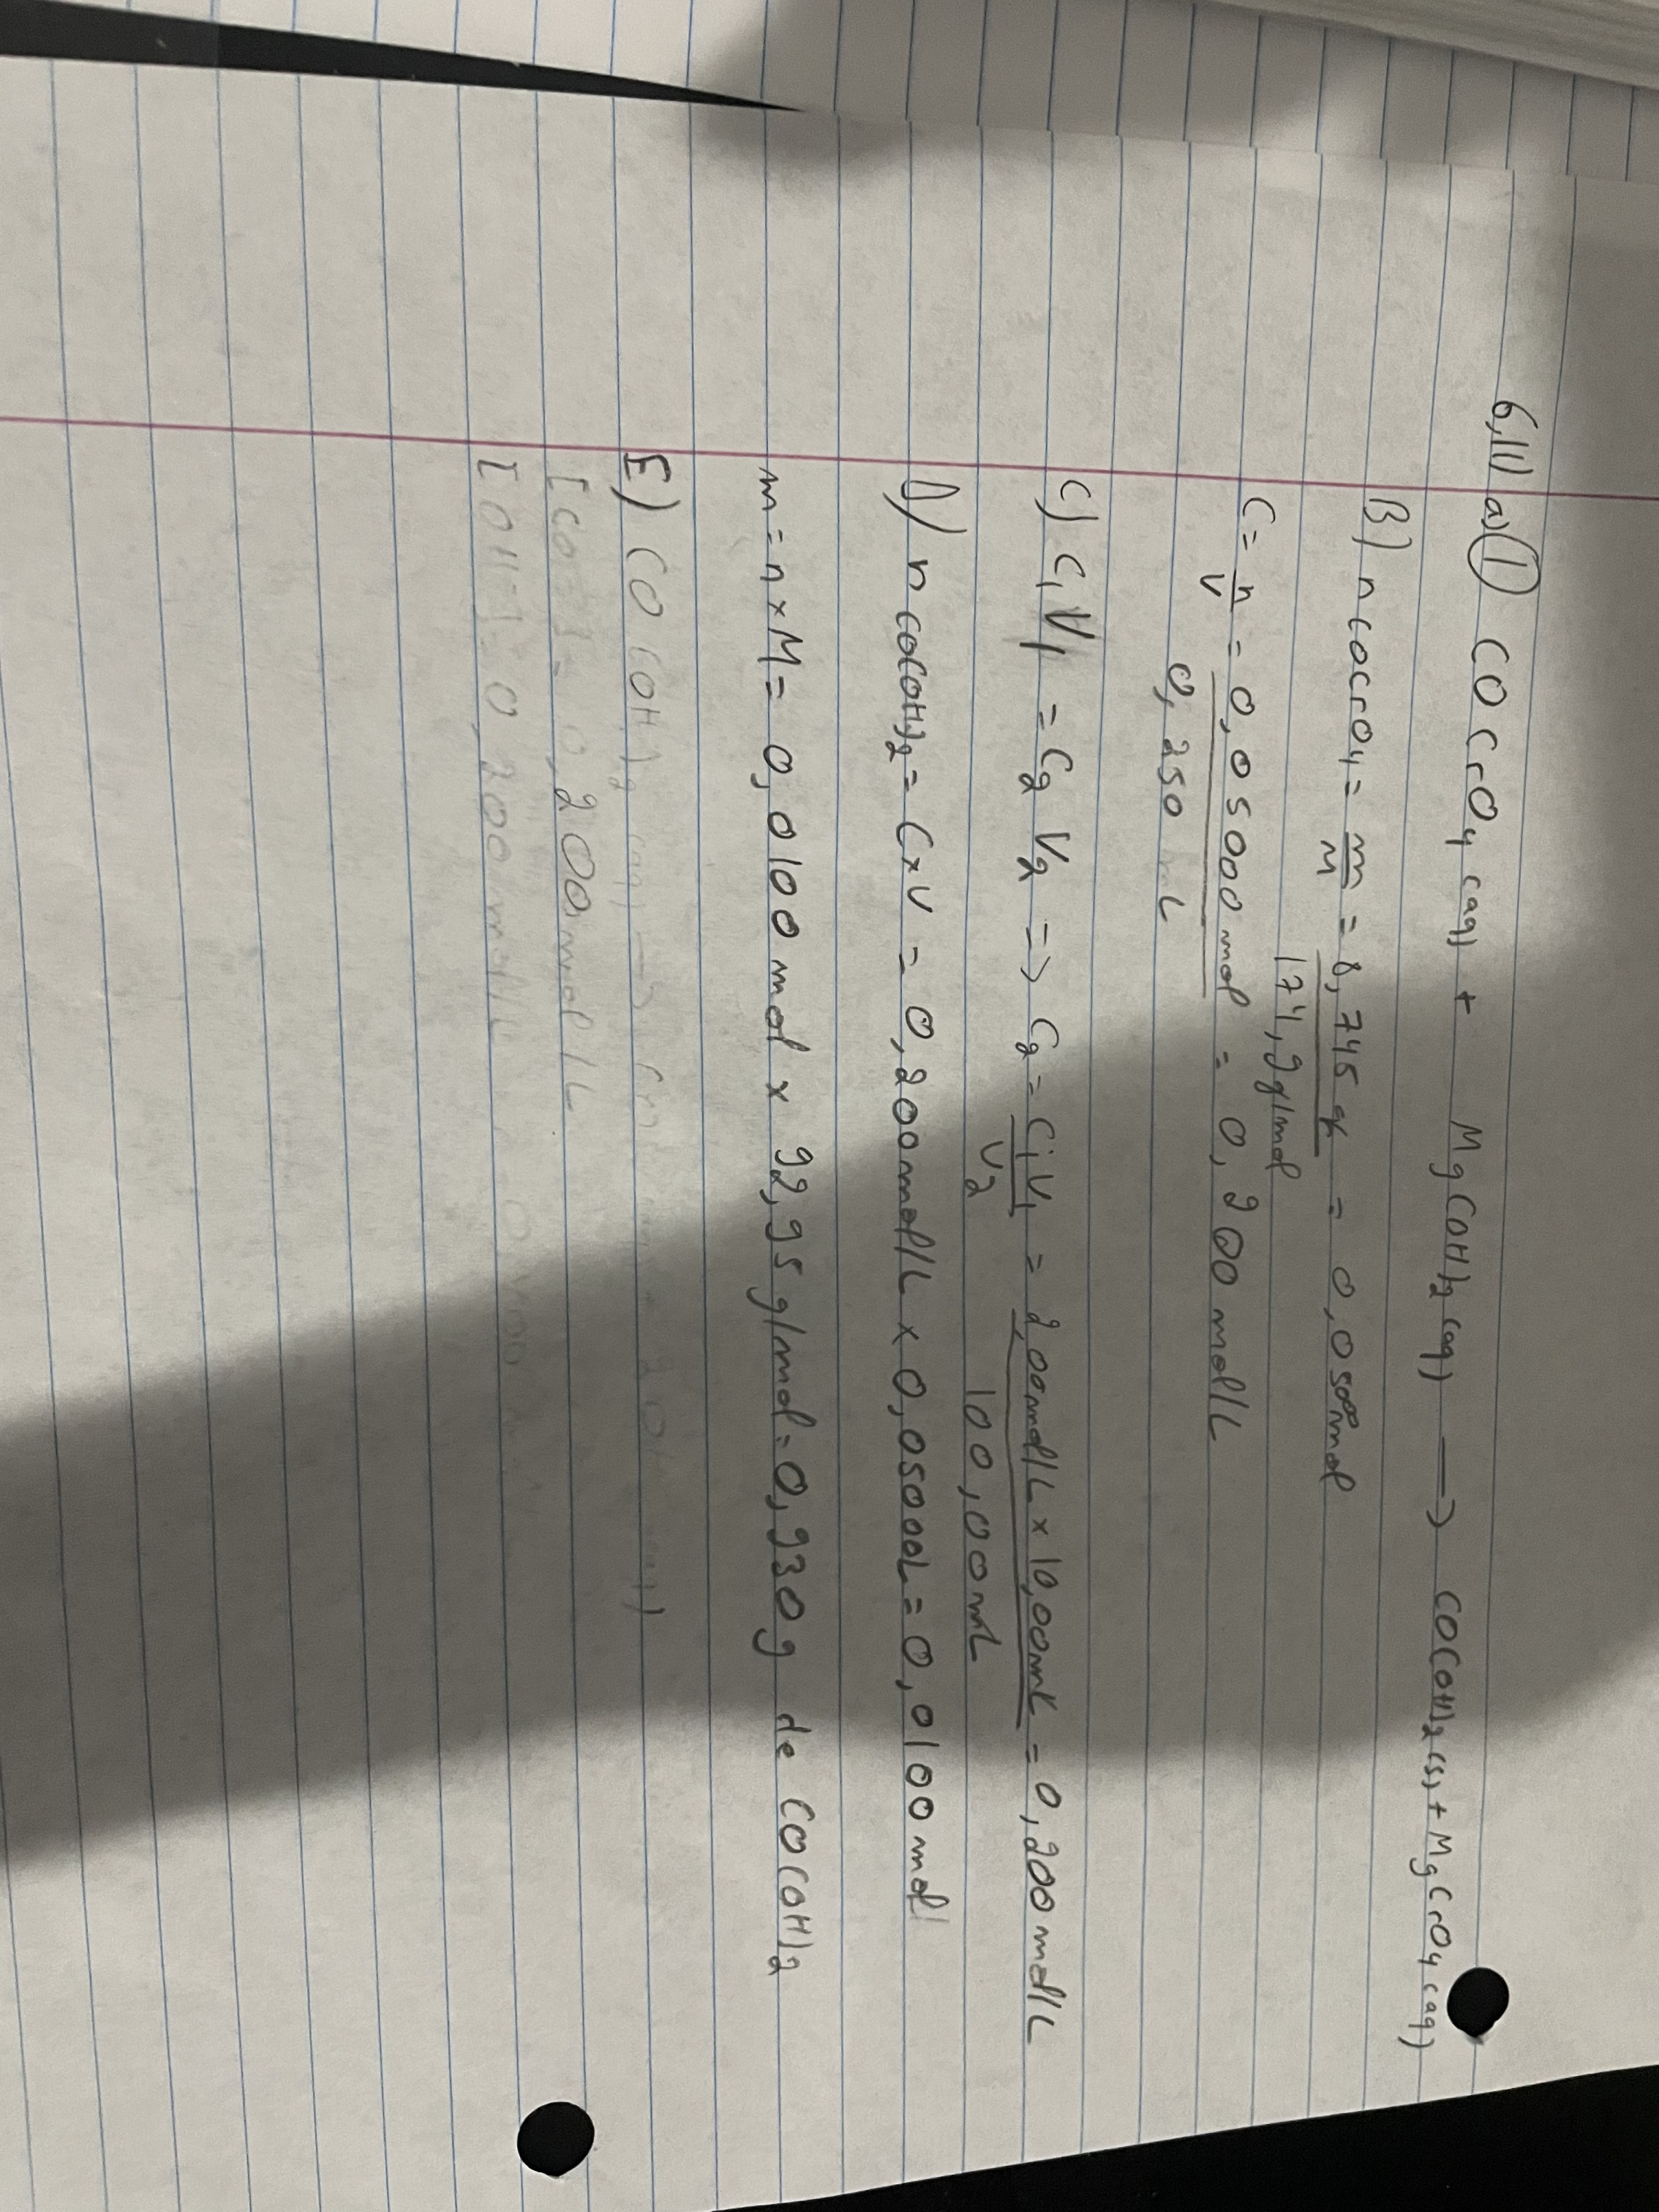 6,11) a) 1 COCrO4 (aq) + Mg(OH)2 (aq) → CO(OH)2 (s) + MgCrO4 (aq)
B) n cocrO4 = m/M = 8,745 g / 174,9 g/mol = 0,0500 mol
C = n/V = 0,05000 mol / 0,250 L = 0,200 mol/L
C) C1V1 = C2V2 => C2 = C1V1/V2 = 2,00 mol/L × 10,00 mL / 100,00 mL = 0,200 mol/L
D) n co(OH)2 = C×V = 0,200 mol/L × 0,0500L = 0,0100 mol
m = n × M = 0,0100 mol × 92,95 g/mol = 0,930 g de CO(OH)2
E) CO(OH)2 (aq) →
= 0,200 mol/L
[OH-] = 0,200 mol/L